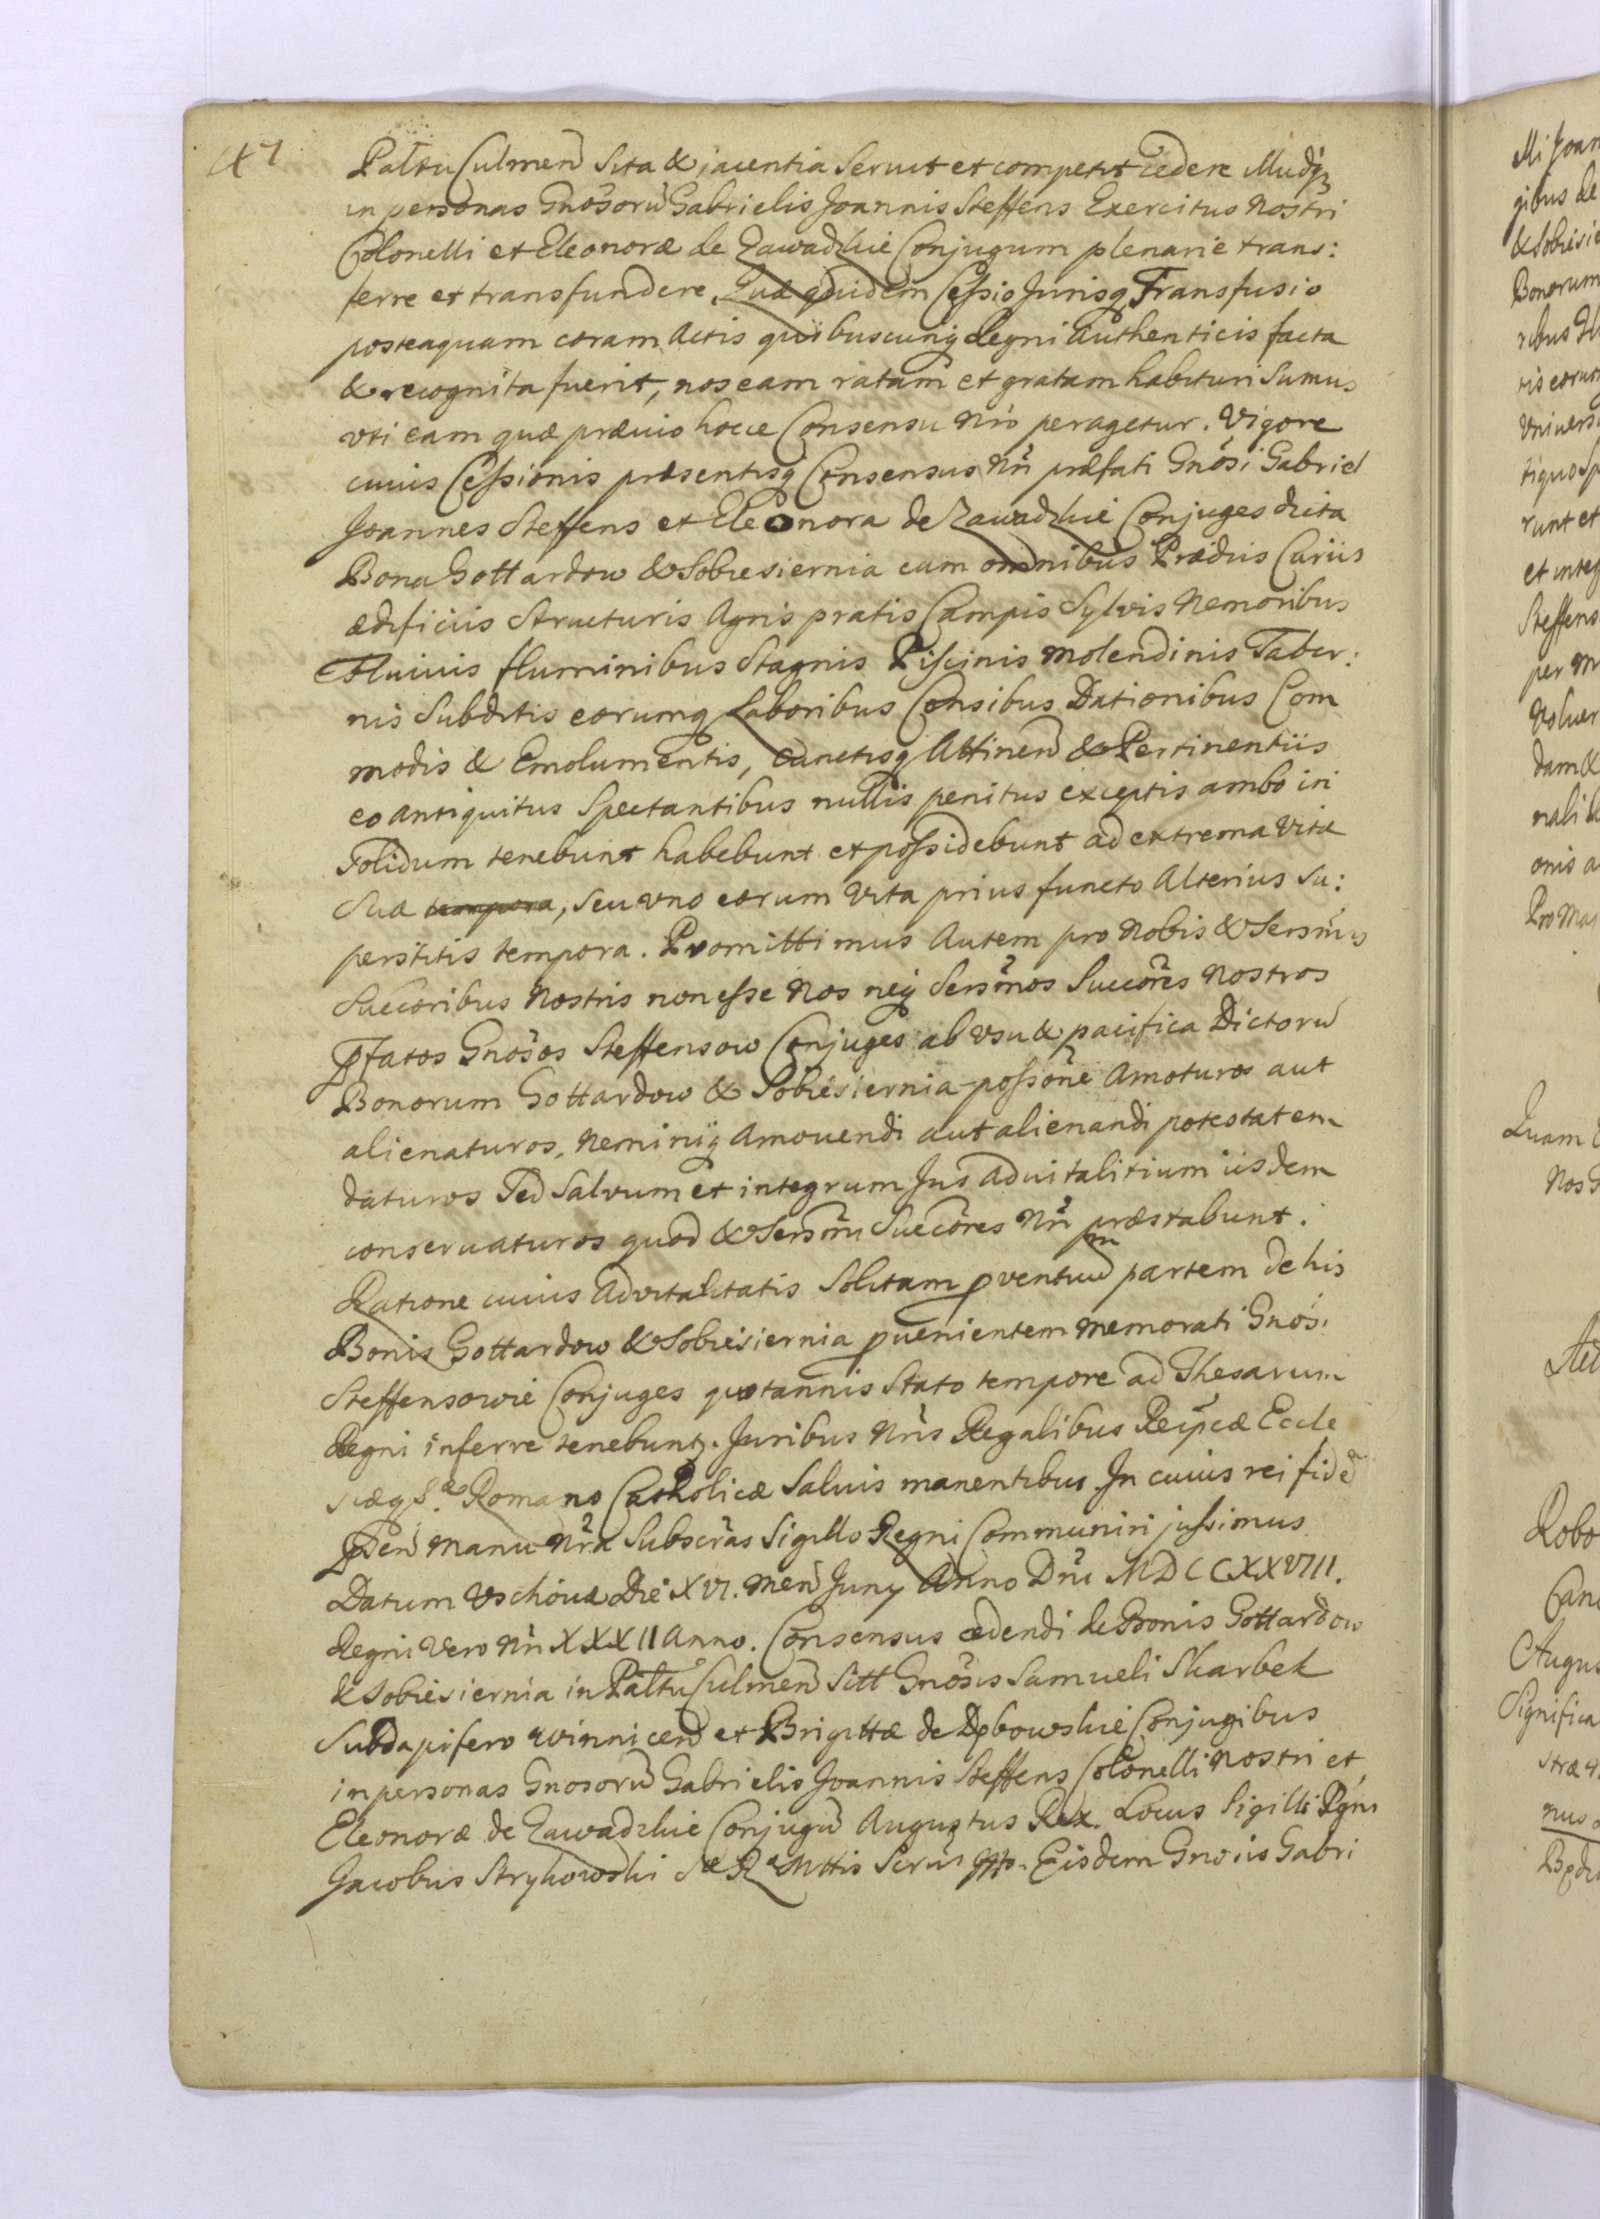 47
Paltu Culmen Sita & jacentia Servit et competit cedere illudq
in personas Gnosorū Gabrielis Joannis Steffens Exercitus Nostri
Colonelli et Eleonoræ de Zawadzkie Conjugum plenarie trans:
ferre et transfundere, Quæ quidem Cessio Jurisq Transfusio
posteaquam coram Actis quibuscunq Regni Authenticis facta
& recognita fuerit, nos eam ratam et gratam habituri Sumus
uti eam quæ prævio hocce Consensu Nrō peragetur. Vigore
cuius Cessionis præsentisq Consensus Nri præfati Gnosi Gabriel
Joannes Steffens et Eleonora de Zawadzkie Conjuges dicta
Bona Gottardow & Sobiesiernia cum omnibus Prædiis Curiis
ædificiis Structuris Agris pratis Campis Sylvis Nemoribus
Fluviis fluminibus Stagnis Piscinis Molendinis Taber:
nis Subditis eorumq Laboribus Censibus Dationibus Com
modis & Emolumentis, Cunctisq Attinen & Pertinentiis
eo antiquitus Spectantibus nullis penitus exceptis ambo in
Solidum tenebunt habebunt et possidebunt ad extrema vitæ
Suæ tempora, seu uno eorum vita prius functo Alterius Su:
perstitis tempora. Promittimus Autem pro Nobis & Sersmis
Succoribus Nostris non esse Nos neq Sersmos Succores Nostros
Pfatos Gnosos Steffensow Conjuges ab usu & pacifica Dictorū
Bonorum Gottardow & Sobiesiernia possone Amoturos aut
alienaturos, Neminiq Amovendi aut alienandi potestatem
daturos Sed Salvum et integrum Jus Advitalitium iisdem
conservaturos quod & Sersmi Succores Nri præstabunt.
Ratione cuius Advitalitatis Solitam pventuū partem de his
Bonis Gottardow & Sobiesiernia pvenientem memorati Gnosi
Steffensowie Conjuges quotannis Stato tempore ad Thesarum
Regni inferre tenebunt. Juribus Nris Regalibus Reipcæ Eccle
siæq S.æ Romano Catholicæ Salvis manentibus. In cuius rei fidē
Psen Manu Nra Subscras Sigillo Regni Communiri jussimus
Datum Vschovæ Die XVI. Men Juny Anno Dni MDCCXXVIII.
Regni Vero Nri XXXII Anno. Consensus cedendi de Bonis Gottardow
& Sobiesiernia in Paltu Culmen Sitt Gnosis Samueli Skarbek
Subdapifero Winnicen et Brigittæ de Dębowskie Conjugibus
in personas Gnosorū Gabrielis Joannis Steffens Colonelli Nostri et
Eleonoræ de Zawadzkie Conjugū Augustus Rex. Locus Sigilli Rgni
Jacobus Strykowski Sæ Ræ Mttis Scrius Mp. Eisdem Gnosis Gabri